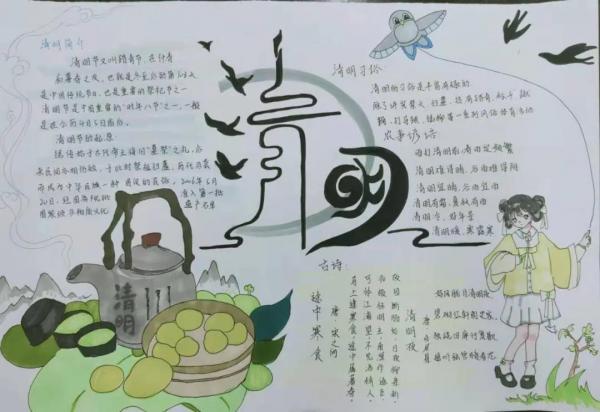 清明简介
清明节又叫踏青节,在仲春
与暮春之交,也就是冬至后的第108天
是中国传统节日,也是重要的祭祀节之一
清明节是中国重要的“时年八节”之一,一般
是在公历4月5日前后。
清明节的起源
据传始于古代帝王将相“墓祭”之礼,后
来民间亦相仿效,于此时祭祖扫墓,历代沿袭
而成为中华民族一种固定的风俗。2006年5月
20日,经国务院批 准入第一批
国家级非物质文化 遗产名录
清明
清明习俗
清明的习俗是丰富有趣的
除了讲究禁火、扫墓,还有踏青、荡秋千、蹴
鞠、打马球、插柳等一系列风俗体育活动
农事谚语
雨打清明前,清明定频繁
清明难得晴,谷雨难得阴
清明宜晴,谷雨宜雨
清明有霜
清明冷,好年景
清明暖,寒露寒
清明
古诗:
途中寒食
唐·宋之问
马上逢寒食,途中属暮春。
可怜江浦望,不见洛桥人。
北极怀明主,南溟作逐臣。
故园肠断处,日夜柳条新
清明夜
唐 白居易
好风胧月清明夜,
碧砌红轩刺史家。
独绕回廊行复歇,
遥听弦管暗看花。